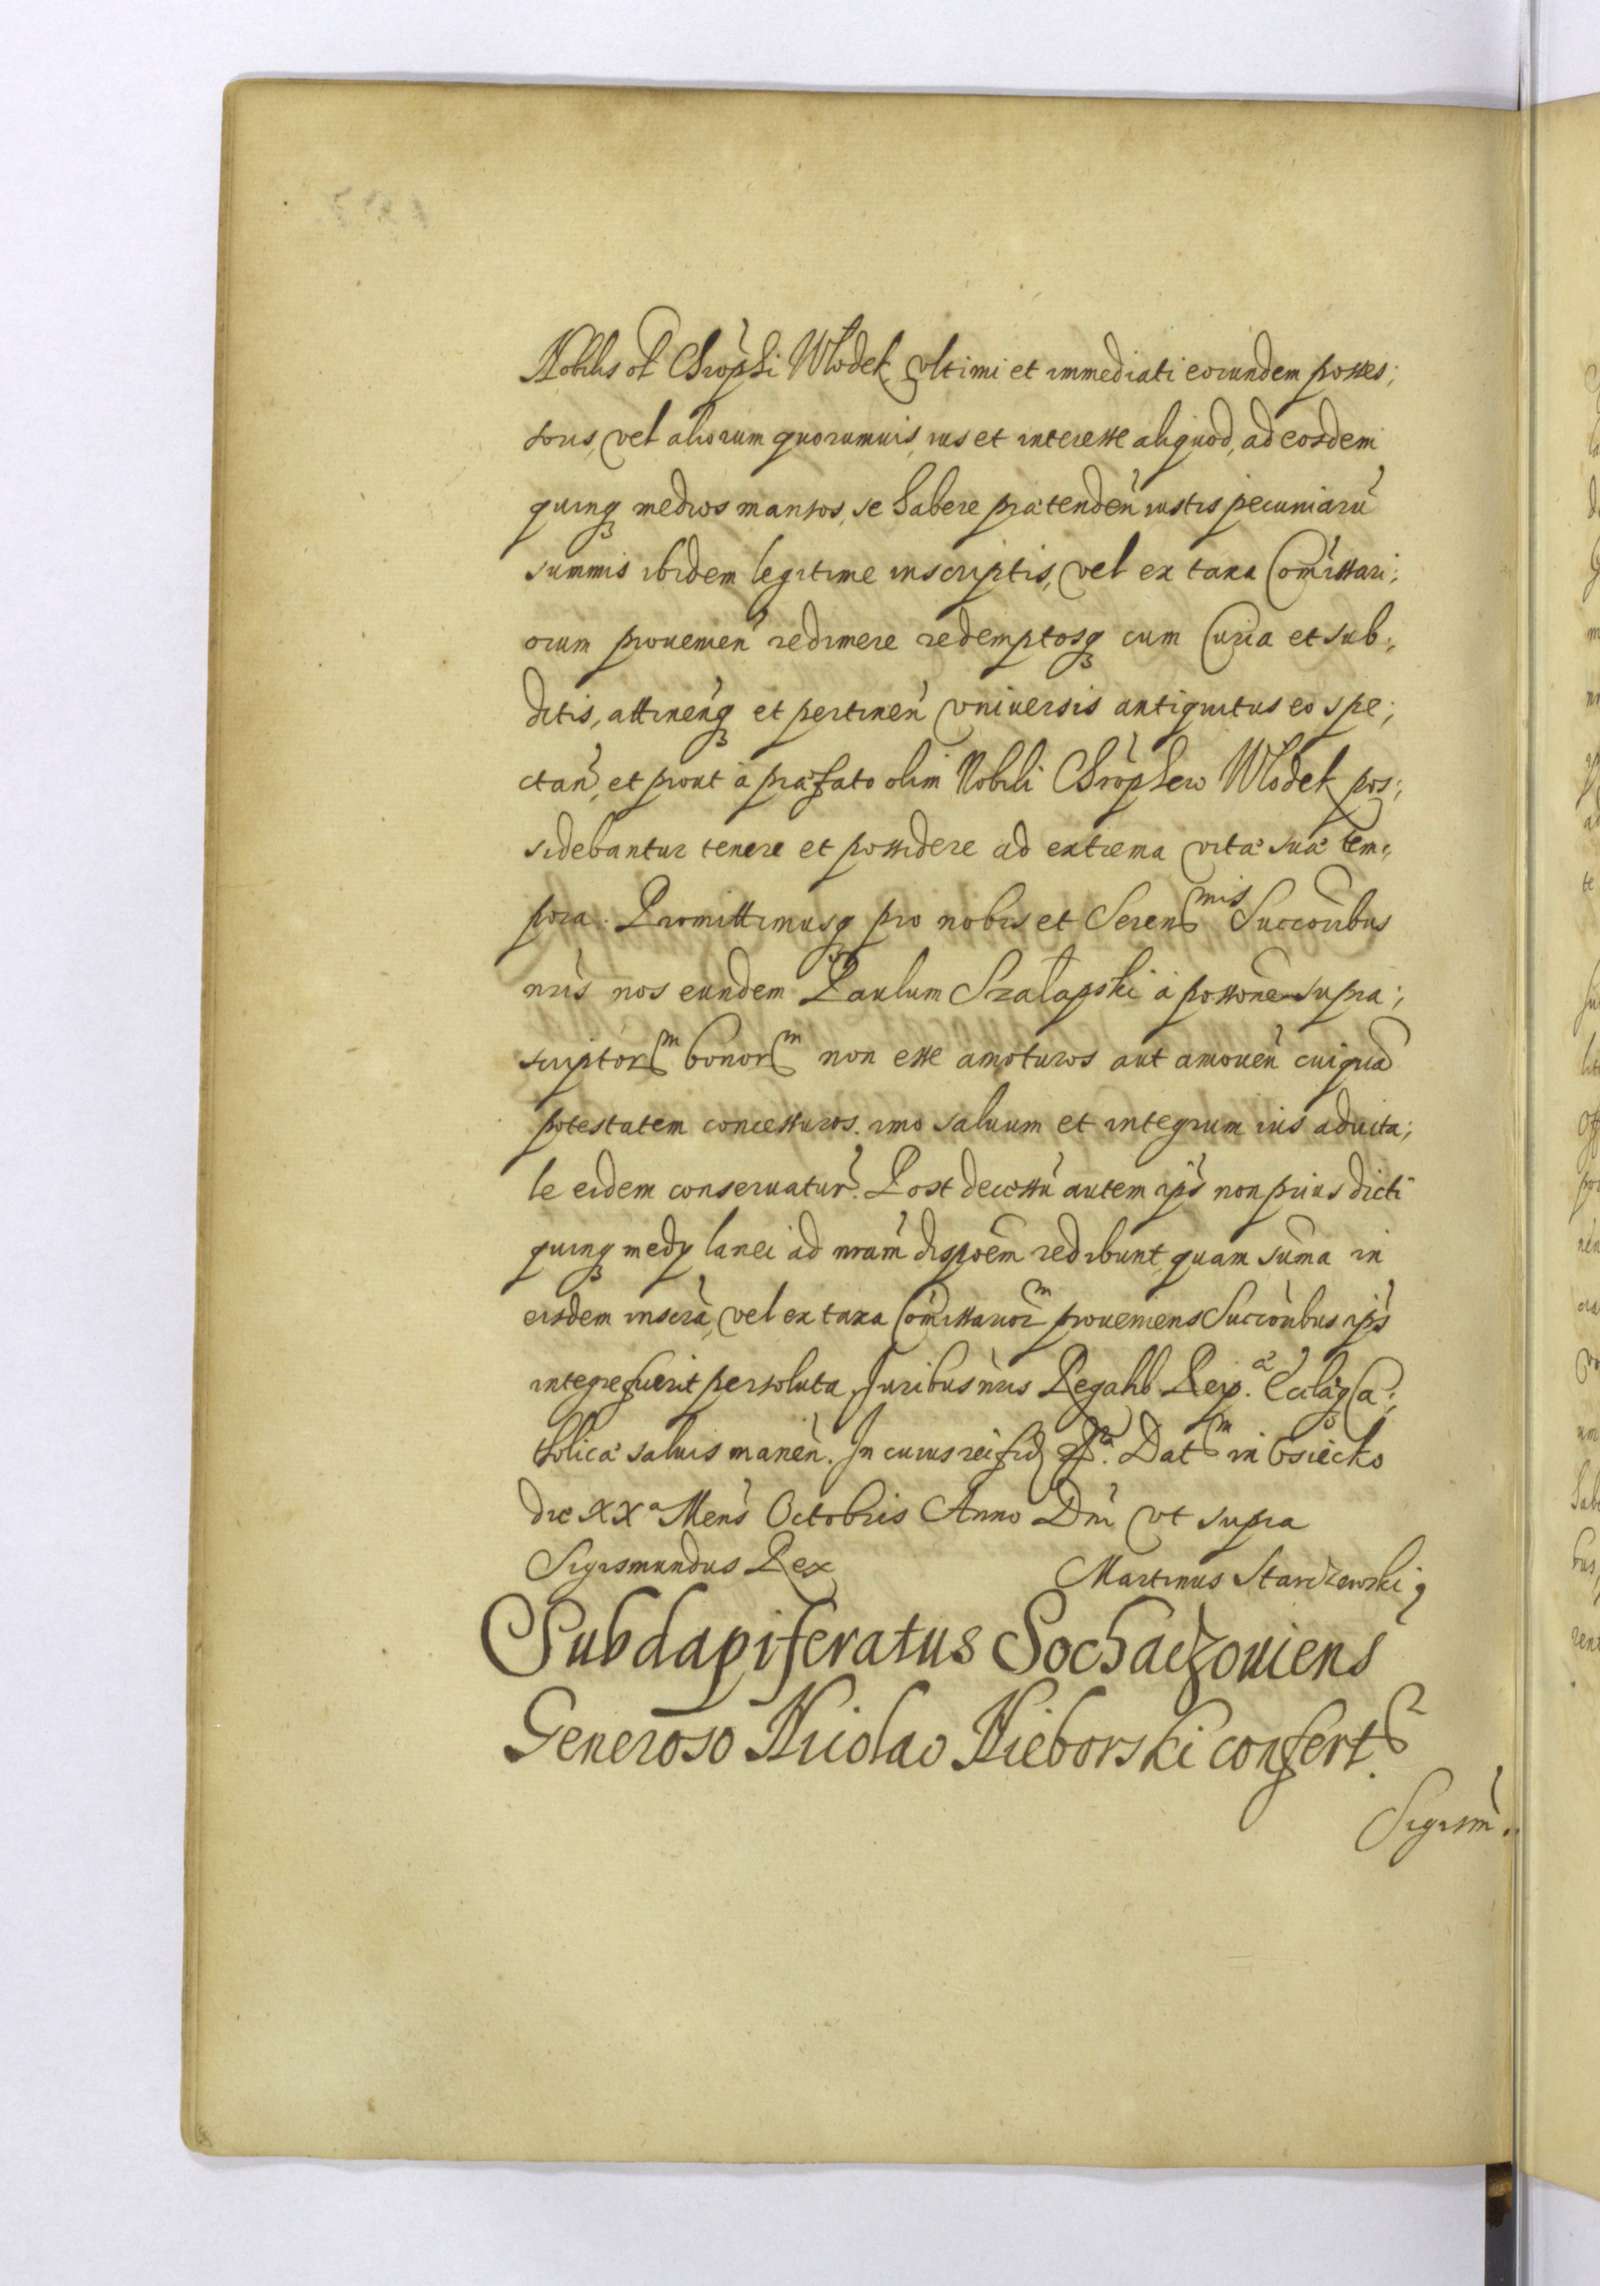 Nobilis ol Chrophi Włodek, vltimi et immediati eorundem posses;
soris, vel aliorum quorumuis, ius et interesse aliquod, ad eosdem
quinq medios mansos, se habere prætenden iustis pecuniarũ
summis ibidem legitime inscriptis, vel ex taxa Com̃issari;
orum prouenien redimere redemptosq cum Curia et sub;
ditis, attinenq et pertinen vniuersis antiquitus eo spe;
ctan, et prout à præfato olim Nobili Chrophero Włodek pos;
sidebantur tenere et possidere ad extrema vitæ suæ tem;
pora. Promittimusq pro nobis et Seren^mis Succoribus
nris nos eundem Paulum Szałapski à possone supra;
scriptor^m bonor^m non esse amoturos aut amouen cuiquã
potestatem concessuros. imo saluum et integrum ius aduita;
le eidem conseruatur. Post decessũ autem ips non prius dicti
quinq medy lanei ad nram dispoem redibunt, quam sum̃a in
eisdem inscra, vel ex taxa Com̃issarior^m proueniens Succoribus ips
integre fuerit persoluta. Juribus nris Regalib Reip.^æ Ecclæq Ca;
tholicæ saluis manen. In cuius rei fid Dat^m in Osiecko
die XX^a Mens Octobris Anno Dni vt supra
Sigismundus Rex Martinus Starczewski
Subdapiferatus Sochaczouiens
Generoso Nicolao Nieborski confert^r.
Sigism̃..